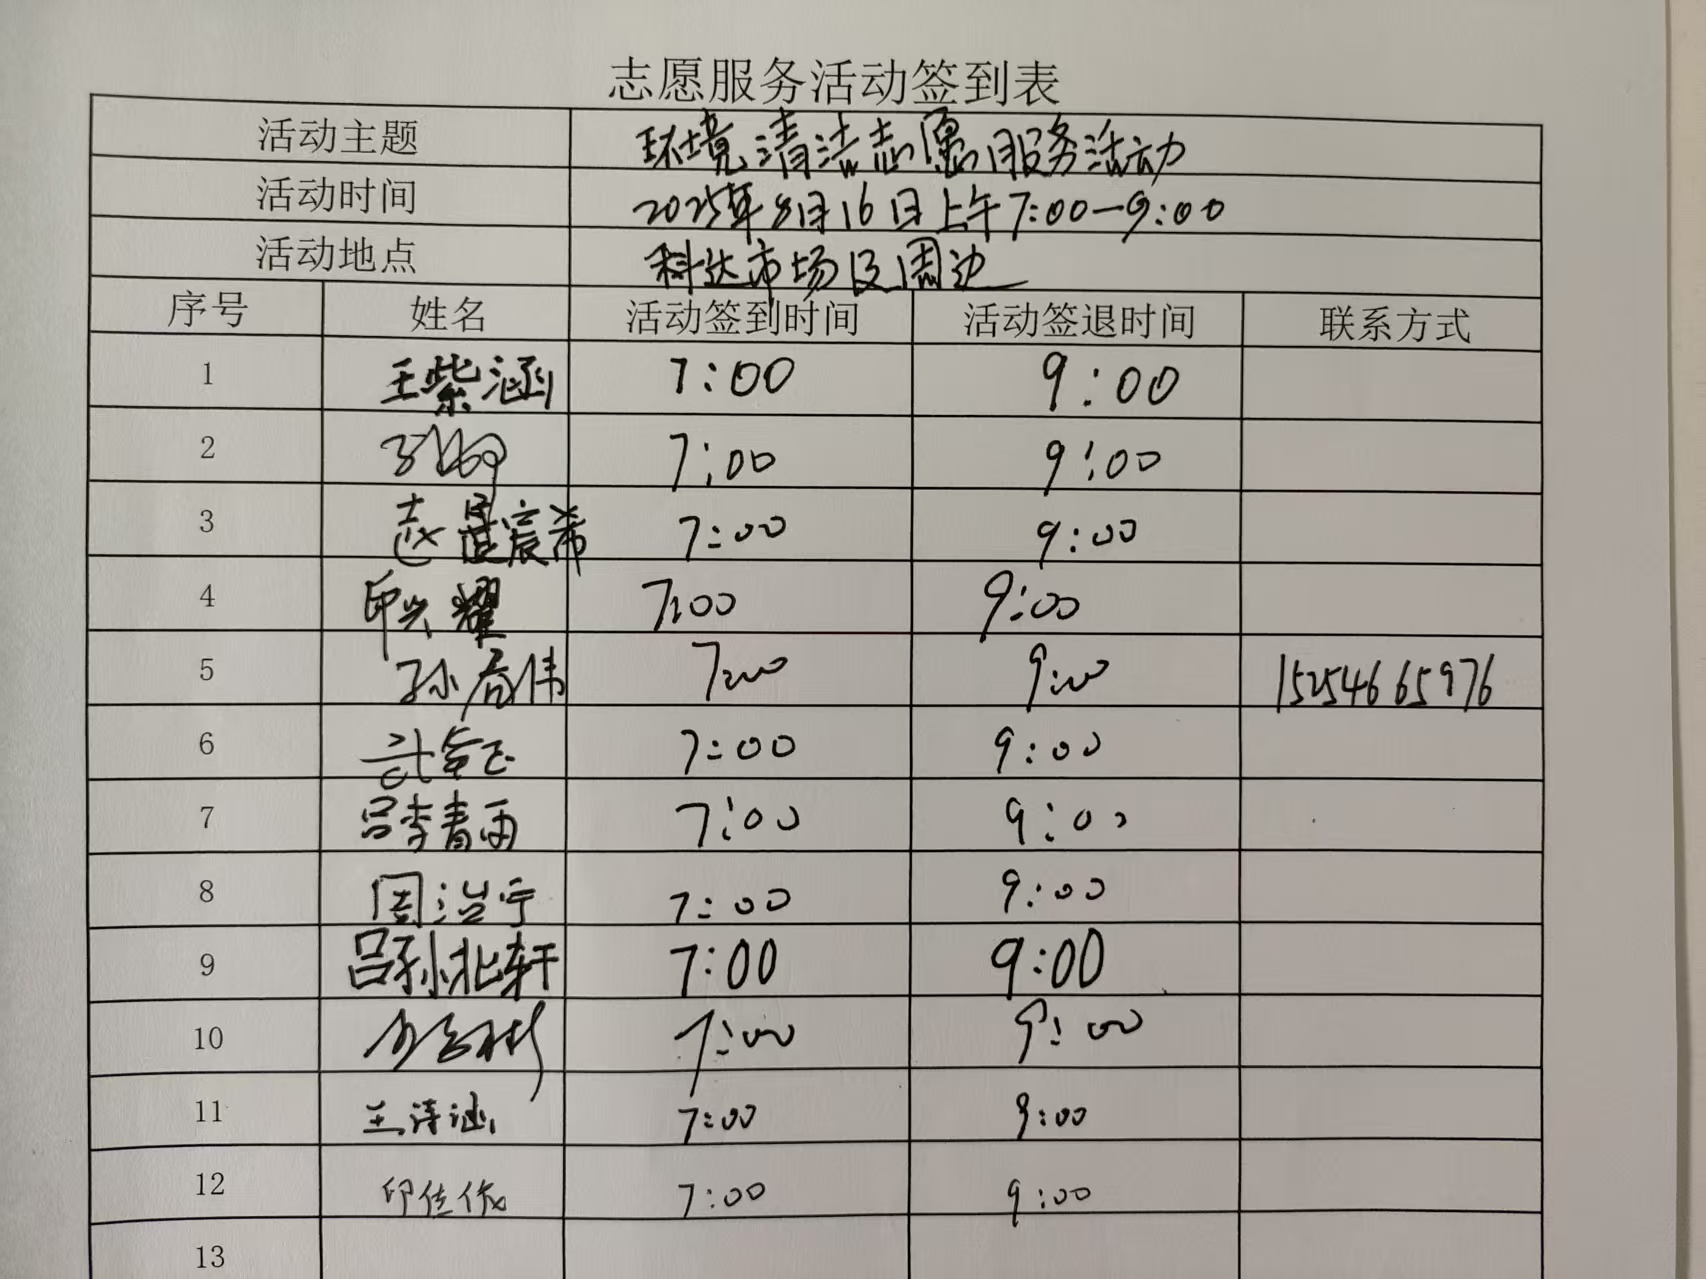 志愿服务活动签到表
活动主题 环境清洁志愿服务活动
活动时间 2025年8月16日上午7:00—9:00
活动地点 科达市场及周边
序号 姓名 活动签到时间 活动签退时间 联系方式
1 王紫涵 7:00 9:00
2 7:00 9:00
3 赵晨宸希 7:00 9:00
4 印兴耀 7:00 9:00
5 孙 伟 7:00 9:00 15254665976
6 7:00 9:00
7 吕李青雨 7:00 9:00
8 周浩宁 7:00 9:00
9 吕孙北轩 7:00 9:00
10 7:00 9:00
11 王诗涵 7:00 9:00
12 印佳依 7:00 9:00
13